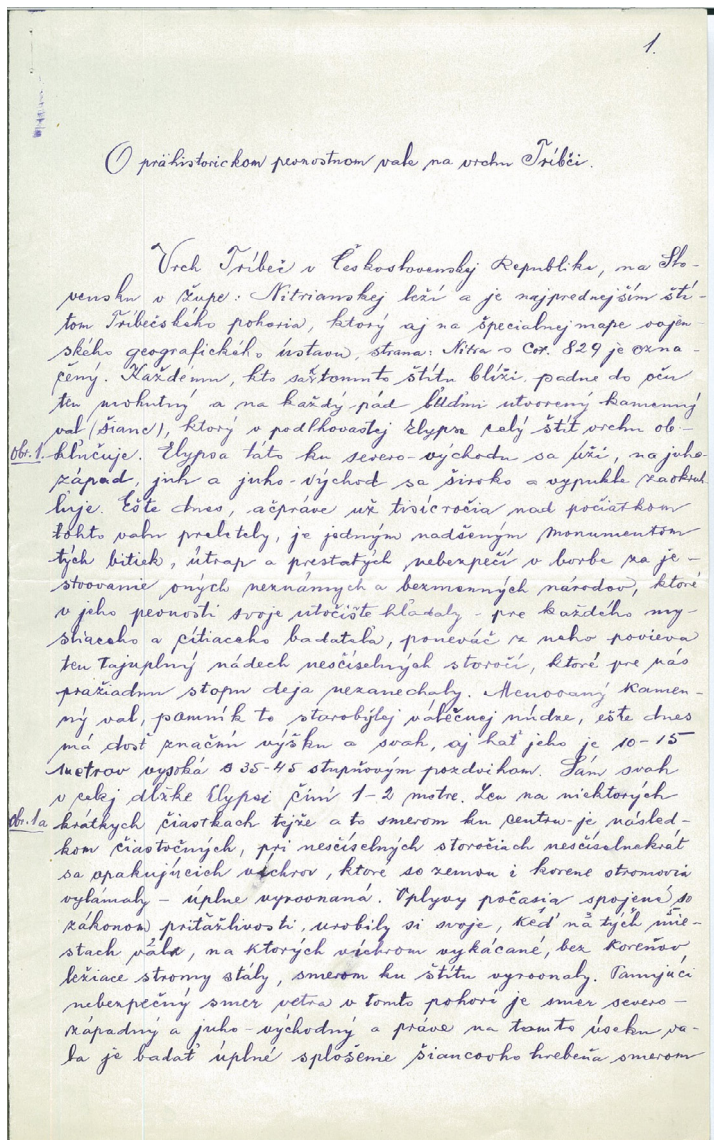 1.
O prähistorickom pevnostnom vale na vrchu Tríbči.
Vrch Tríbeč v Československej Republike, na Slo-
vensku v župe: Nitrianskej leží a je najprednejším ští-
tom Tríbečského pohoria, ktorý aj na špecialnej mape vojen-
ského geografického ústavu, strana: Nitra s Cot. 829 je ozna-
čený. Každému, kto sa k tomuto štítu blíži padne do očú
ten mohutný a na každý pád ľudmi utvorený kamenný
val (šianc), ktorý v podlhovastej Elypse celý štít vrchu ob-
obr. 1. kľučuje. Elypsa táto ku severo-východu sa úži, na juho-
západ, juh a juho-východ sa široko a vypukle zaokruh
ľuje. Ešte dnes, ačpráve už tisícročia nad počiatkom
tohto valu preletely, je jedným nadšeným monumentom
tých bitiek, útrap a prestatých nebezpečí v borbe za je-
stvovanie oných neznámych a bezmenných národov, ktoré
v jeho pevnosti svoje útočište hľadaly - pre každého my-
sliaceho a cítiaceho badateľa, poneváč z neho povieva
ten tajuplný nádech nesčíselných storočí, ktoré pre nás
pražiadnu stopu deja nezanechaly. Menovaný kamen-
ný val, pamník to starobylej válečnej núdze, ešte dnes
má dosť značnú výšku a svah, aj hať jeho je 10-15
metrov vysoká s 35-45 stupňovým pozdvihom. Sám svah
v celej dĺžke Elypsi činí 1-2 metre. Len na niektorých
obr. 1a krátkych čiastkach tejže a to smerom ku centru - je násled-
kom čiastočných, pri nesčíselných storočiach nesčíselnekrát
sa opakujúcich víchrov, ktoré so zemou i korene stromovia
vylámaly - úplne vyrovnaná. Vplyvy počasia spojené so
zákonom priťažlivosti, urobily si svoje, keď na tých mie-
stach vála, na ktorých víchrom vykácané, bez koreňov
ležiace stromy stály, smerom ku štítu vyrovnaly. Panujúci
nebezpečný smer vetra v tomto pohorí je smer severo-
západný a juho-východný a práve na tomto úseku va-
la je badať úplné splošenie šiancovho hrebeňa smerom